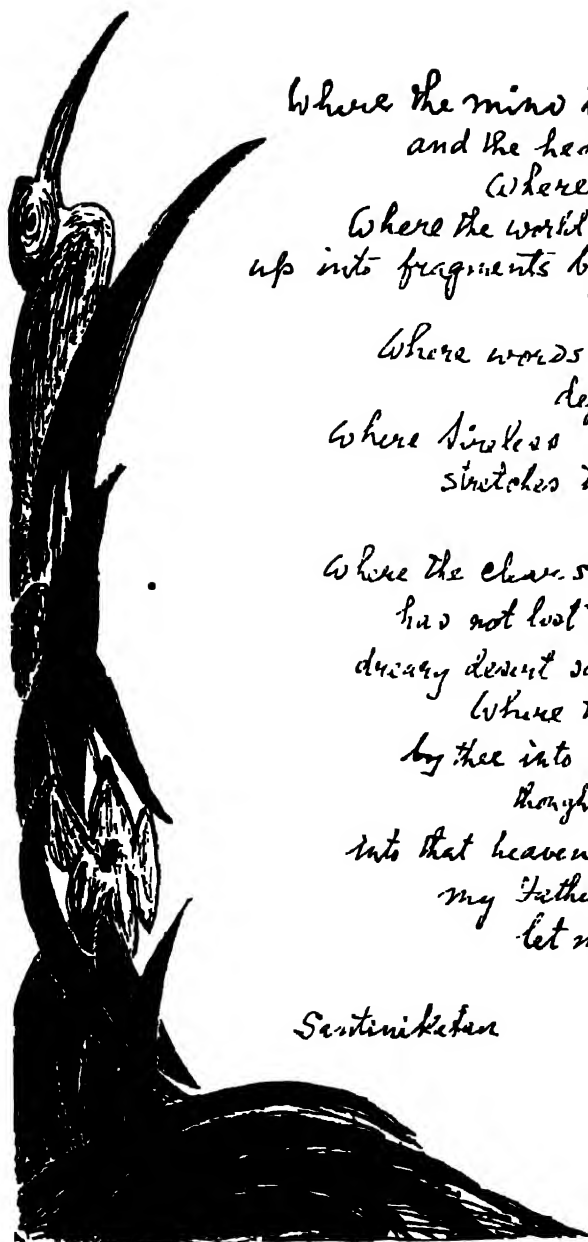 Where the mind
and the hea
Where
Where the world
up into fragments b
Where words
de
Where tireless
stretches
Where the clear s
has not lost
dreary desert sa
Where
by thee into
though
into that heaven
my Fathe
let m
Santiniketan